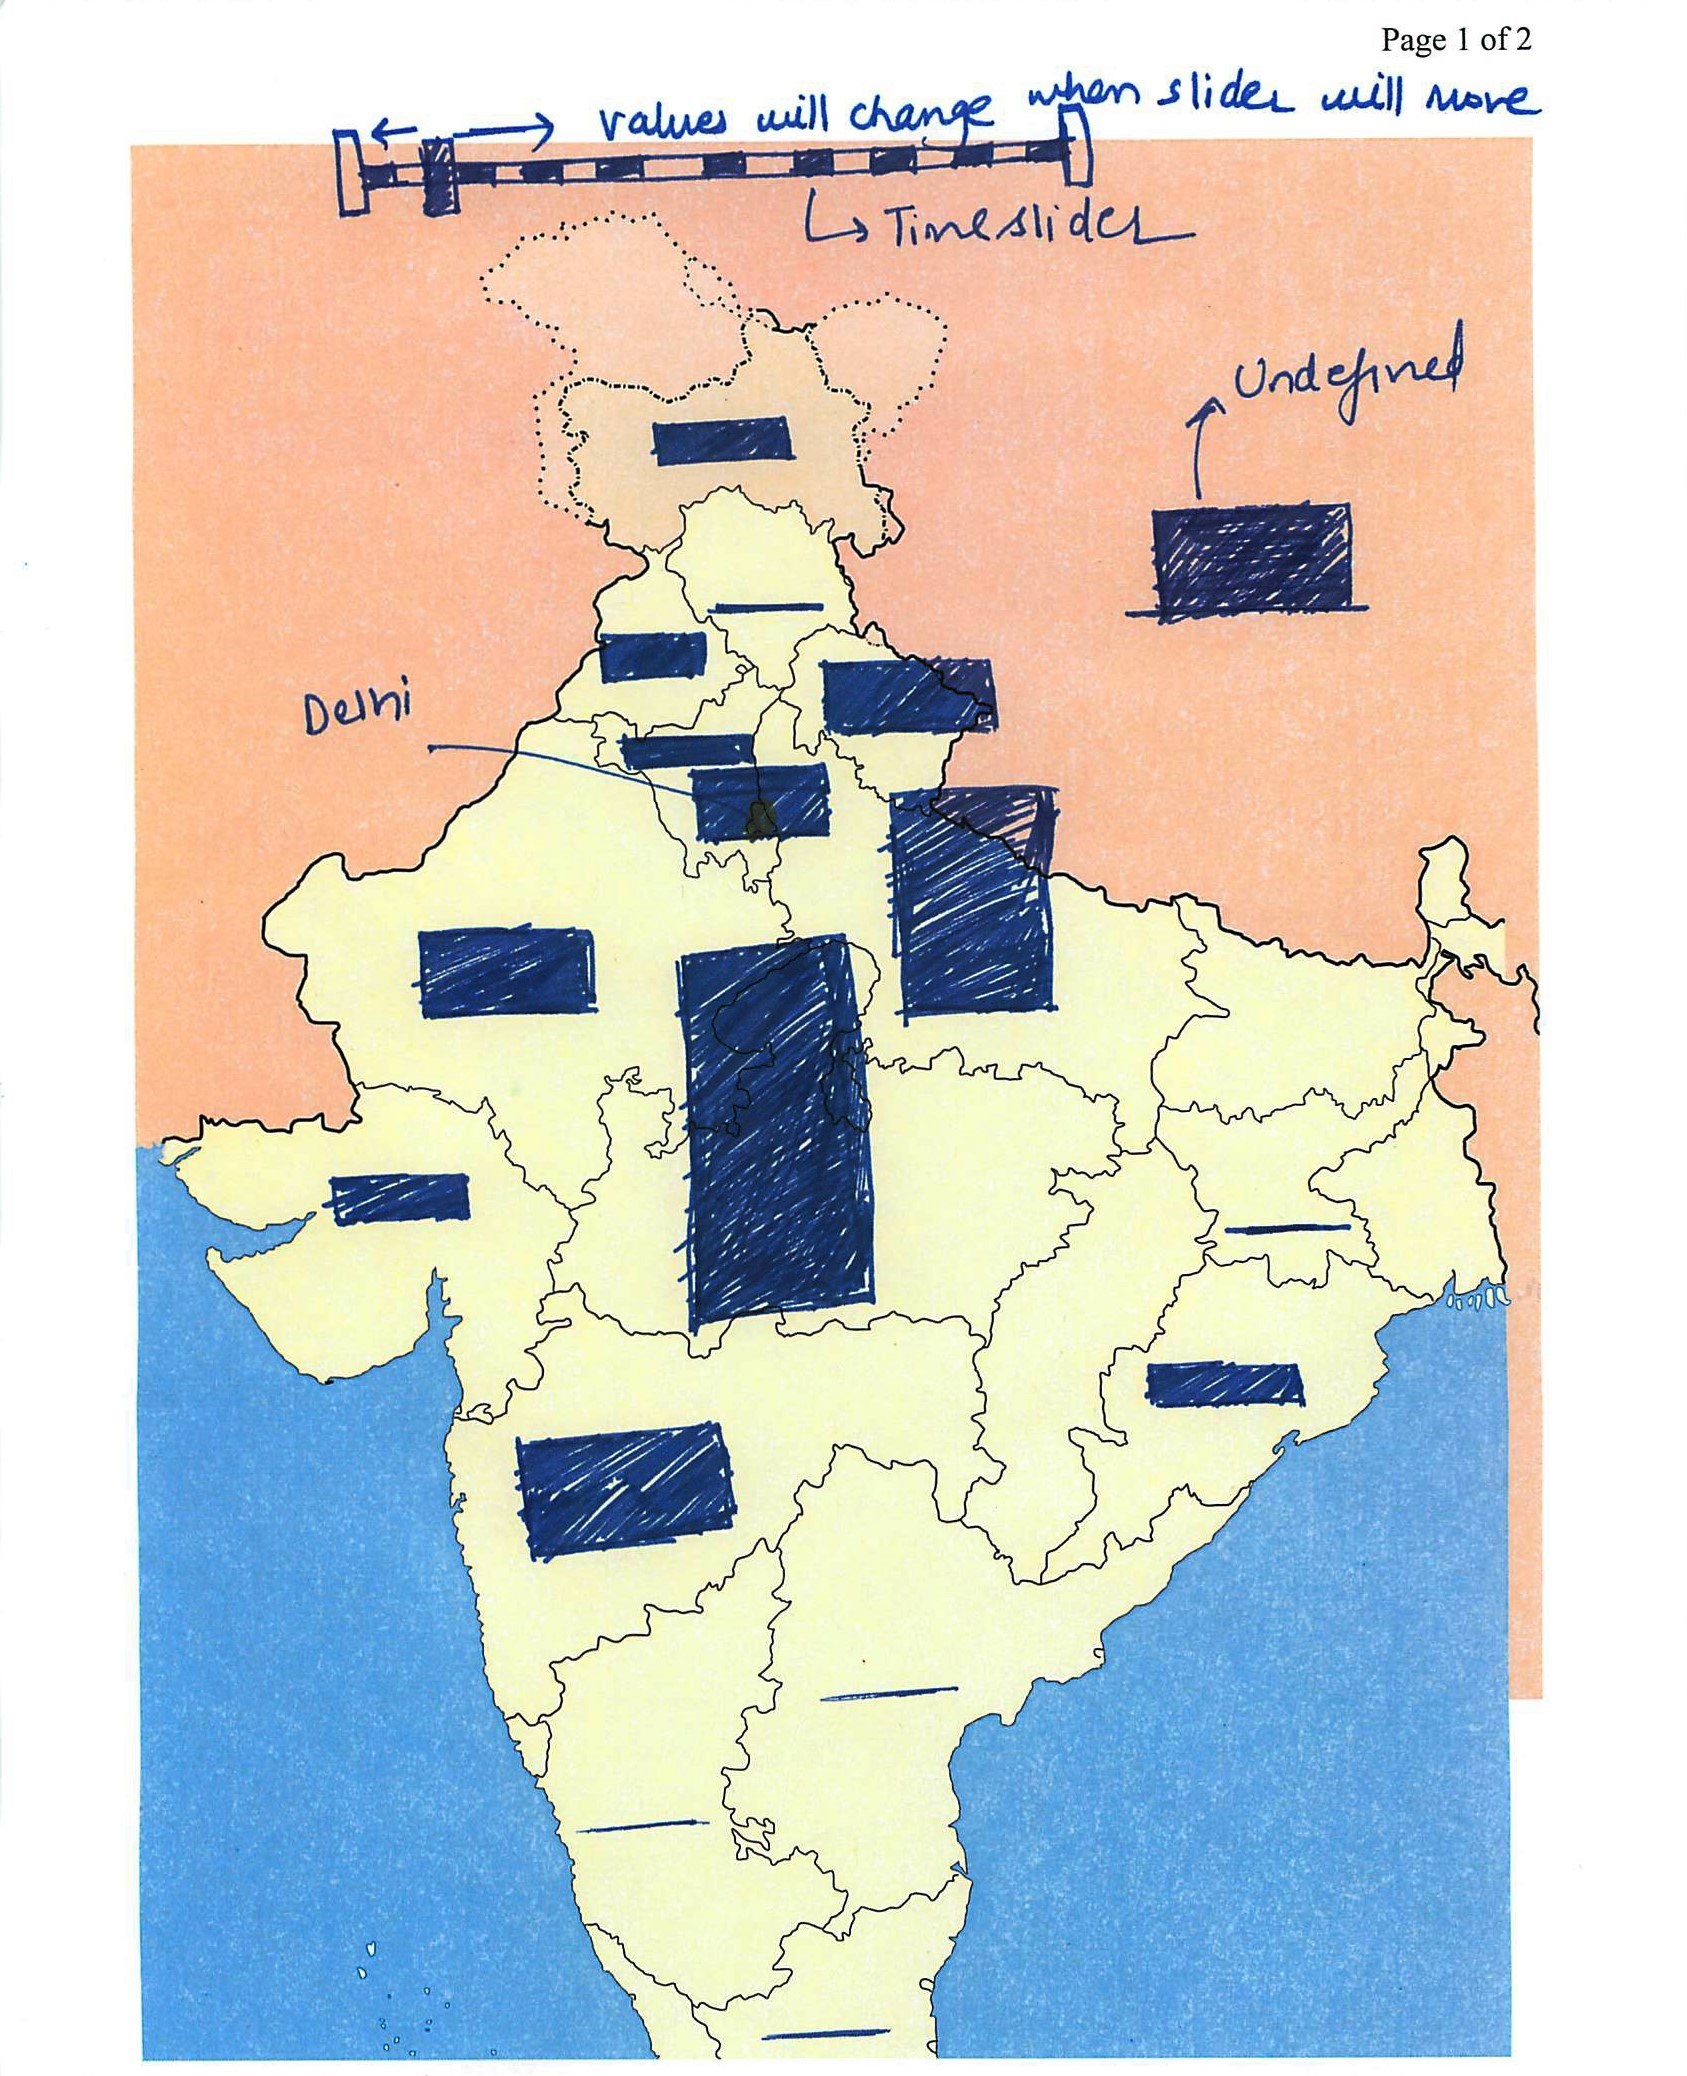 Page 1 of 2
values will change when slider will move
Timeslider
Undefined
Delhi